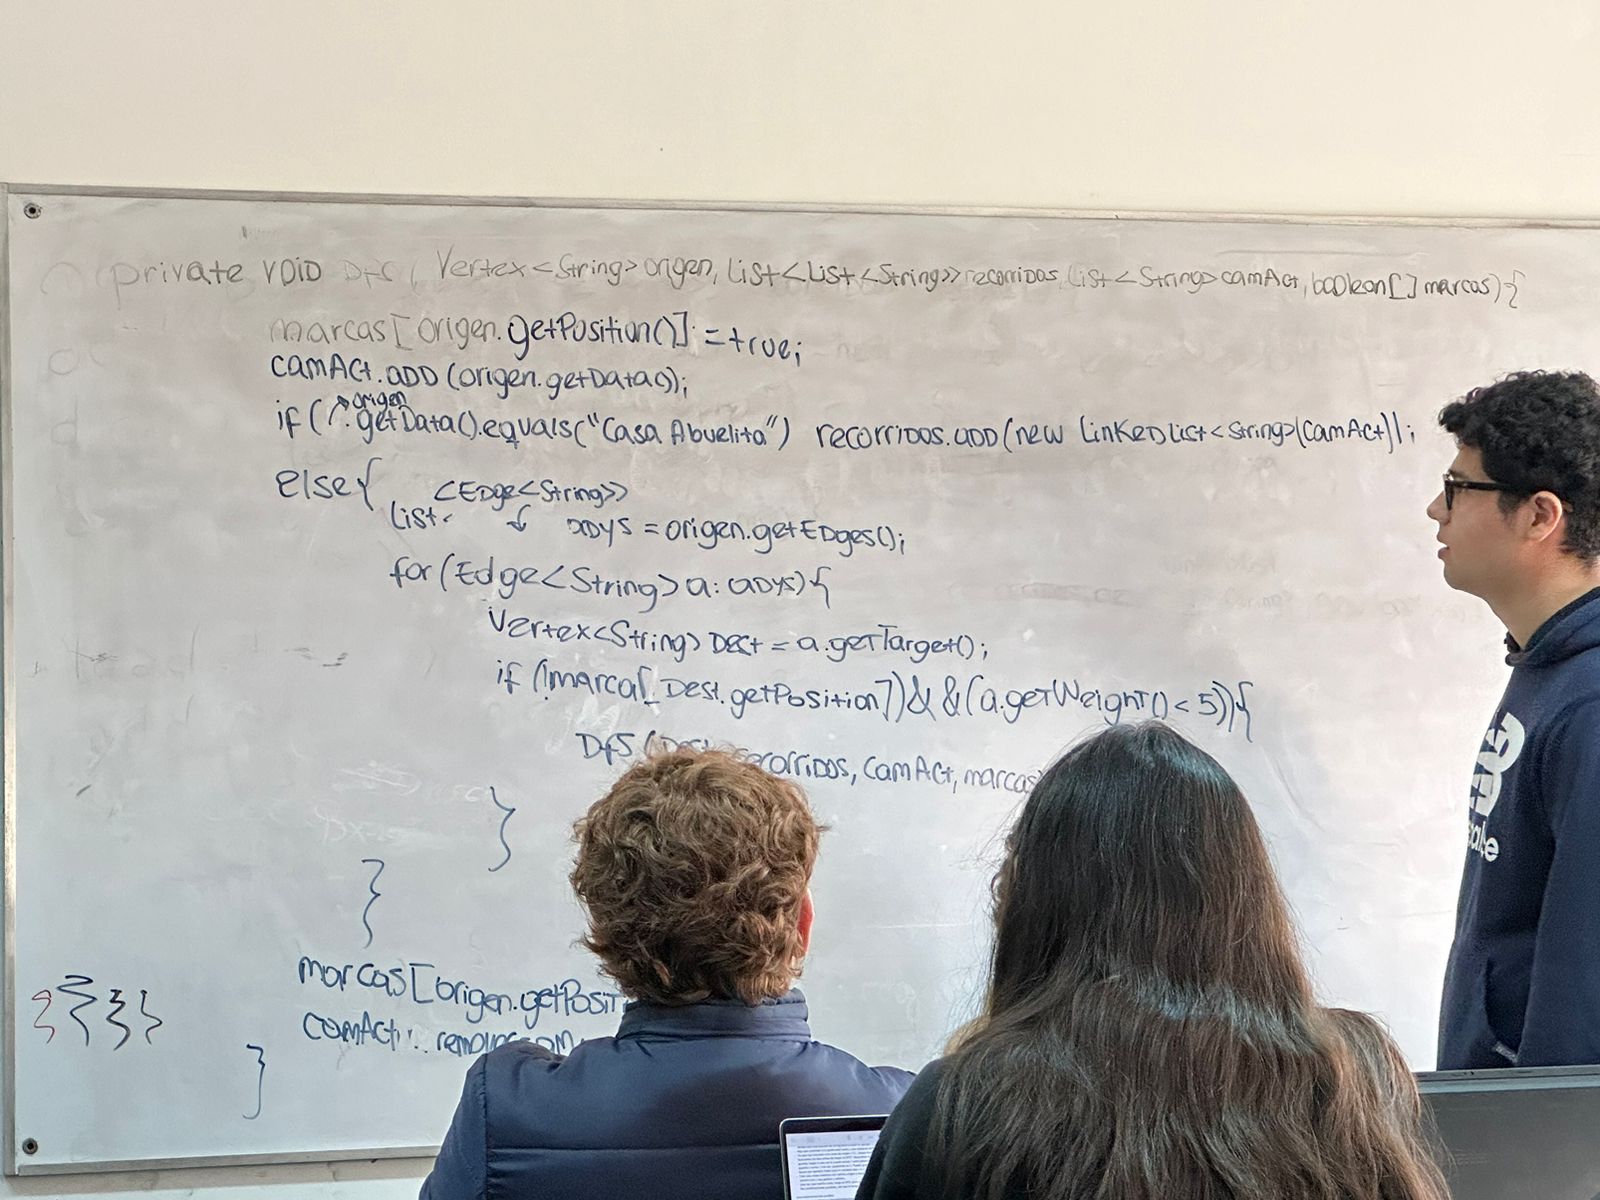 private void Dfs ( Vertex<String> origen, List<List<String>> recorridos, List<String> camAct, boolean[] marcas) {
marcas[origen.getPosition()] = true;
camAct.add (origen.getData());
origen
if ( .getData().equals("Casa Abuelita") recorridos.add (new LinkedList<String>(camAct));
else {
<Edge<String>>
List adys = origen.getEdges();
for (Edge<String> a: adys) {
Vertex<String> Dest = a.getTarget();
if (!marca[Dest.getPosition]) && (a.getWeight() < 5)) {
Dfs ( recorridos, camAct, marcas
}
}
marcas[origen.getPosit
camAct.
} } } }
}